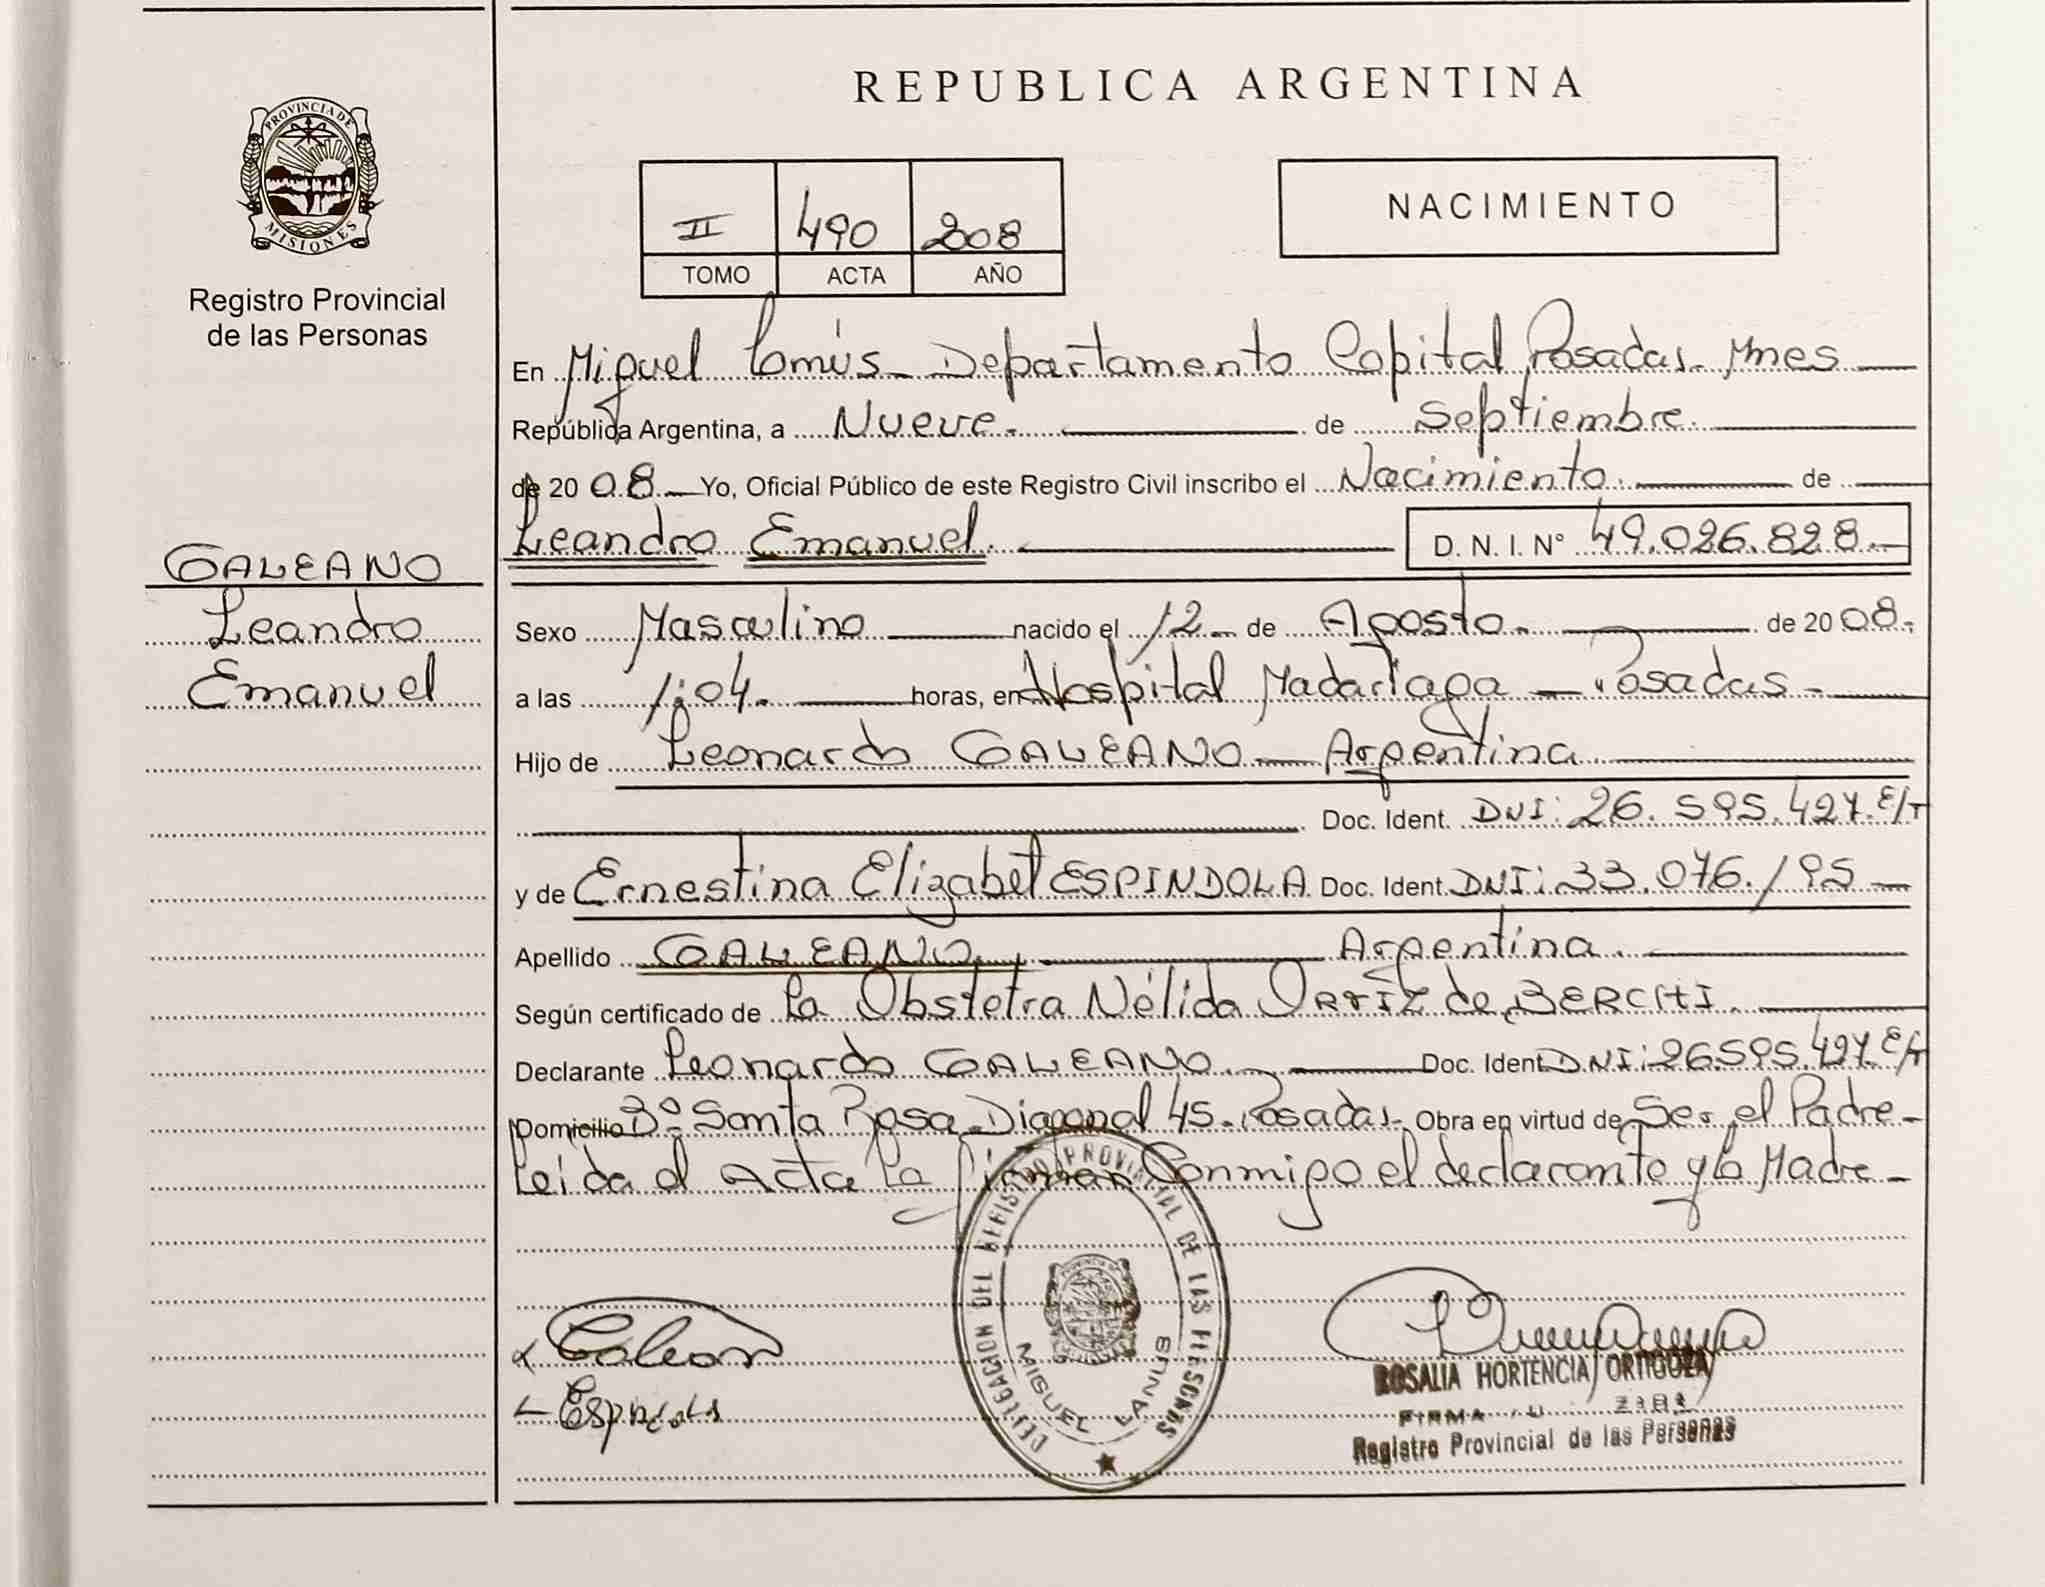 REPUBLICA ARGENTINA
PROVINCIA DE
MISIONES
Registro Provincial
de las Personas
II 490 2008
TOMO ACTA AÑO
NACIMIENTO
En Miguel Lanús - Departamento Capital Posadas - Mnes
República Argentina, a Nueve. de Septiembre.
de 20 08. Yo, Oficial Público de este Registro Civil inscribo el Nacimiento. de
Leandro Emanuel. D. N. I. N° 49.026.828.-
GALEANO
Leandro
Emanuel
Sexo Masculino nacido el 12 - de Agosto. de 20 08.-
a las 1:04. horas, en Hospital Madariaga - Posadas -
Hijo de Leonardo GALEANO - Argentina
Doc. Ident. DNI: 26.595.427. E/T
y de Ernestina Elizabet ESPINDOLA Doc. Ident. DNI: 33.076.195 -
Apellido GALEANO. Argentina.
Según certificado de la Obstetra Nélida Ortiz de
Declarante Leonardo GALEANO. Doc. Ident. DNI: 26.595.427. E/T
Domicilio B° Santa Rosa - Diagonal 45 - Posadas - Obra en virtud de Ser el Padre -
Leída el Acta la firman Conmigo el declarante y la Madre -
DELEGACION DEL REGISTRO PROVINCIAL DE LAS PERSONAS
MIGUEL LANUS
Galeano
Espindola
ROSALIA HORTENCIA ORTIGOZA
FIRMA
Registro Provincial de las Personas